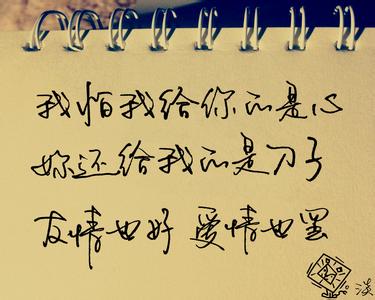 我怕我给你的是心
妳还给我的是刀子
友情也好 爱情也罢
淡